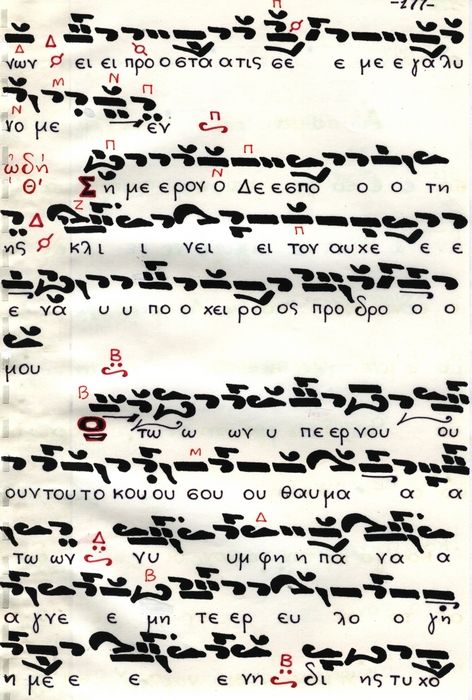 -177-
νων ει ει προ ο στα α τις σε ε με ε γα λυ
νο με εν
ὠδή
Θ' Σ η με ε ρον ο Δε ε σπο ο ο ο τη
ης κλι ι νει ει τον αυ χε ε ε
ε να υ υ πο ο χει ρο ος προ δρο ο ο
μου
Ο τω ω ων υ πε ερ νου ου
ουν του το κου ου σου ου θαυ μα α α
τω ων νυ υμ φη η πα να α α
α γνε ε μη τε ερ ευ λο ο γη
η με ε ε ε ε νη δι ης τυ χο